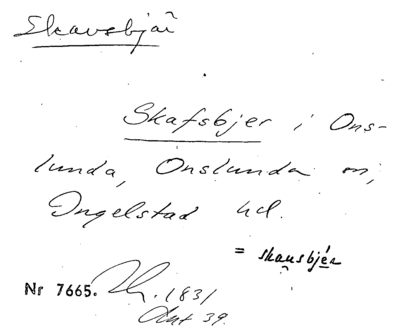 Skavsbjär
Skafsbjer i Ons-
lunda, Onslunda sn,
Ingelstad hd.
= skausbjér
Nr 7665. 1831
39.